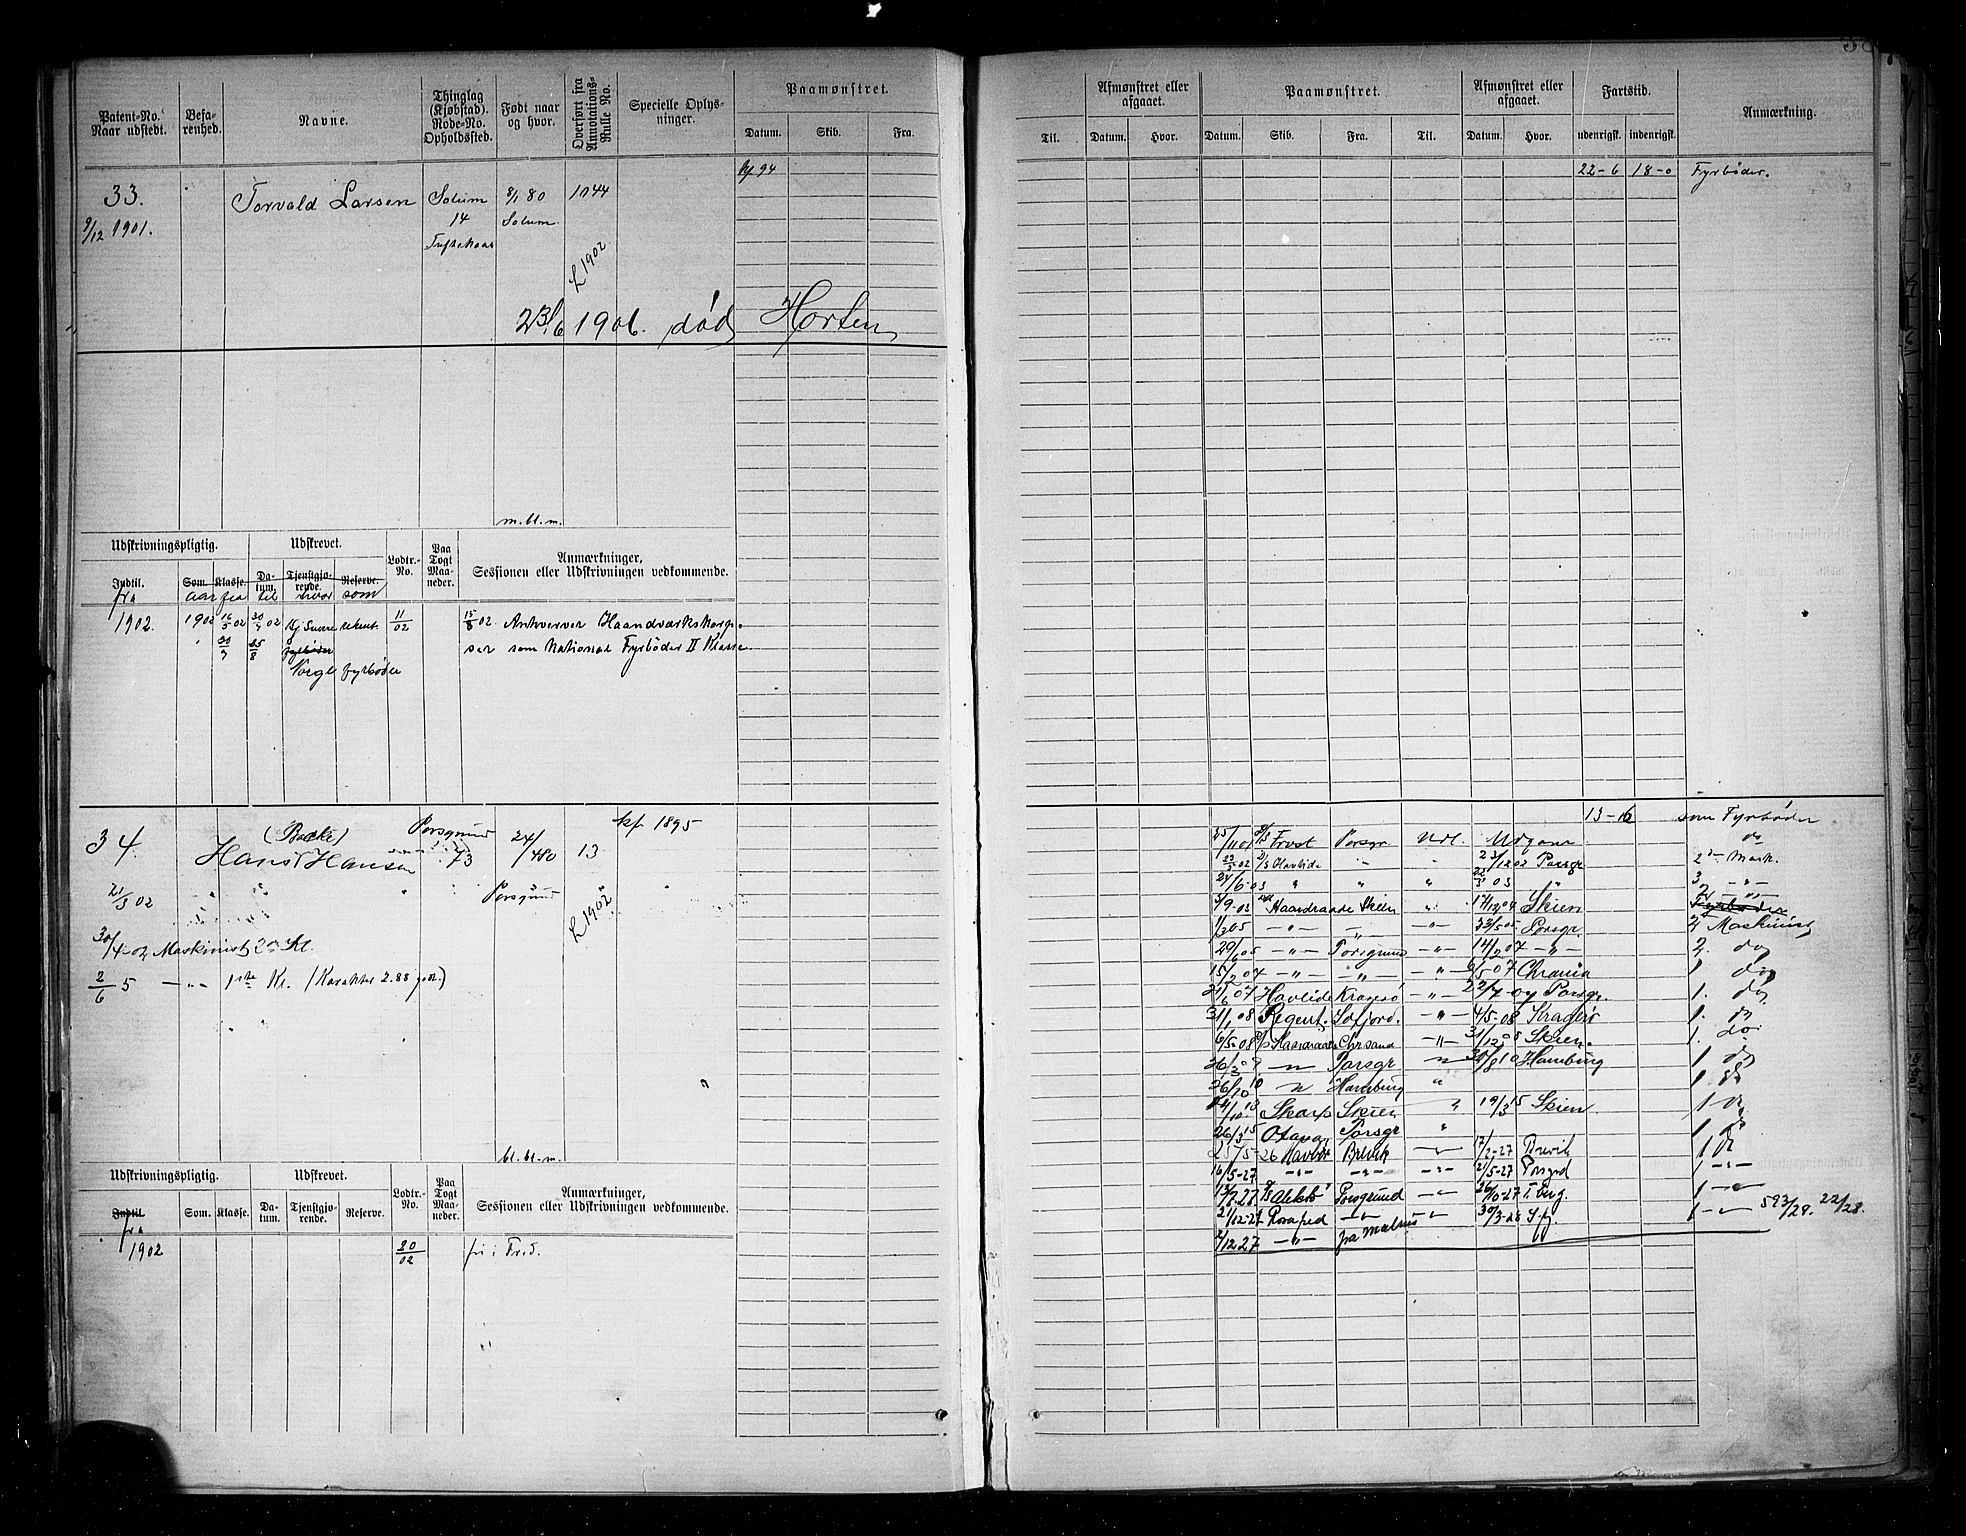 Patent-No. Naar udstedt.
Befarenhed.
Navne.
Thinglag (Kjøbstad). Rode-No. Opholdssted.
Født naar og hvor.
Overført fra Annotations-Rulle No.
Specielle Oplysninger.
Paamønstret.
Datum. Skib. Fra.
Til.
Afmønstret eller afgaaet.
Datum. Hvor.
Paamønstret.
Datum. Skib. Fra. Til.
Afmønstret eller afgaaet.
Datum. Hvor.
Fartstid.
udenrigsk. indenrigsk.
Anmærkning.
94
22-6 18-0 Fyrbøder.
33. Torvald Larsen Solum 8/1 80 1044
9/12 1901. 14 Solum
L 1902
23/6 1906. død Horten
m. bl. m.
Udskrivningspligtig. Udskrevet. Lodtr.-No. Paa Togt Maaneder. Anmærkninger, Sessionen eller Udskrivningen vedkommende.
Indtil. Som. Klasse. Datum. Tjenstgjørende. Reserve.
fra aar fra til hvor som
1902. 1902 16/5 02 30/7 02 rekrut. 11/02 15/8 02 Anhverver Haandværkskorp-
30/7 25/8 fyrbøder ser som National Fyrbøder II Klasse.
Norge fyrbøder
34. (Bakke) Porsgrund 24/4 80 13 kf. 1895
Hans Hansen 73
21/3 02 Porsgrund L 1902
30/4-02 Maskinist 2den Kl.
2/6 5 -"- 1ste Kl. (Karakter 2.88 godt.)
bl. bl. m.
13-16 som Fyrbøder
25/11 01 Porsgr. Udl. do
02 Havlide " " 23/12 02 Porsgr. 2- Mask.
24/6-03 " " " 03 " 3 -"-
3/9-03 Haardraade Skien " 17/12 04 Skien Fyrbøder
1/3 05 -"- -"- -"- 23/5 05 Porsgr. 2 Maskinist
29/6 05 -"- Porsgrund -"- 14/2 07 -"- 2. do
15/2 07 -"- -"- -"- 6/5 07 Chrania 1. do
21/6 07 Havlide Kragerø -"- 22/7-07 Porsgr. 1. do
31/1 08 Regent. -"- 4/5-08 Kragerø 1. do
6/5-08 Haardraade Chrsand -"- 31/12 08 Skien. 1. do
26/3 09 -"- Porsgr -"- 10 Hamburg 1 do
26/10 10 -"- Hamburg " 1 do
13 Skarp Skien " 19/3 15 Skien 1 do
26/3 15 Otava, Porsgr " 1 do
25/5-26 Brevik -"- 17/2-27 Brevik 1 do
16/5-27 -"- -"- -"- 2/5-27 Porsgrd 1 -"-
27 Porsgrund -"- 26/10-27 1 -"-
21/12-27 -"- " 30/3-28 1 -"- 593/29. 22/28.
2/12 27 -"- fra
Udskrivningspligtig. Udskrevet. Lodtr.-No. Paa Togt Maaneder. Anmærkninger, Sessionen eller Udskrivningen vedkommende.
Indtil. Som. Klasse. Datum. Tjenstgjørende. Reserve.
fra
1902 20/02 fri i Fred.